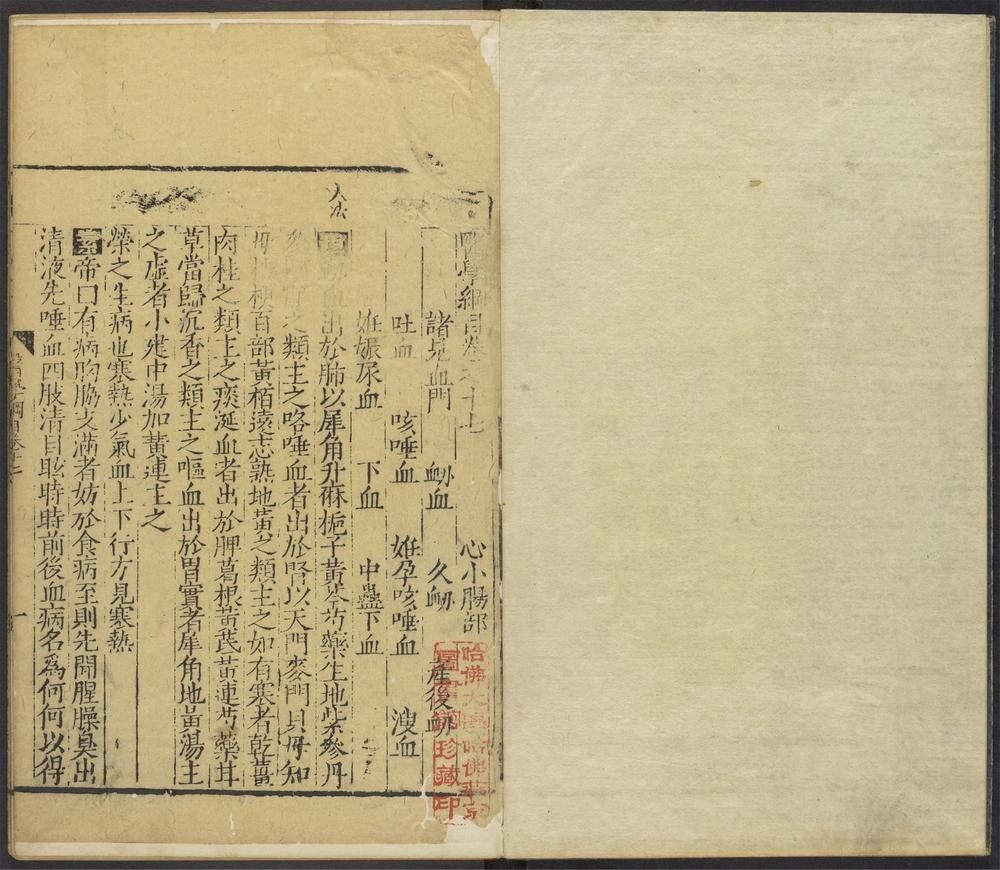 醫學綱目卷之十七　心小腸部
諸見血門　衂血　久衂　產後衂
吐血　咳唾血　姙孕咳唾血　溲血
姙娠尿血　下血　中蠱下血
出於肺以犀角升麻梔子黃芩芍藥生地紫參丹
之類主之咯唾血者出於腎以天門麥門貝母知
母桔梗百部黃栢遠志熟地黃之類主之如有寒者乾薑
肉桂之類主之痰涎血者出於脾葛根黃芪黃連芍藥甘
草當歸沉香之類主之嘔血出於胃實者犀角地黃湯主
之虛者小建中湯加黃連主之
榮之生病也寒熱少氣血上下行方見寒熱
素帝曰有病胸脇支滿者妨於食病至則先聞腥臊臭出
清液先唾血四肢清目眩時時前後血病名爲何何以得
醫學綱目卷十七
一
哈佛大學哈佛燕京
圖書館珍藏印